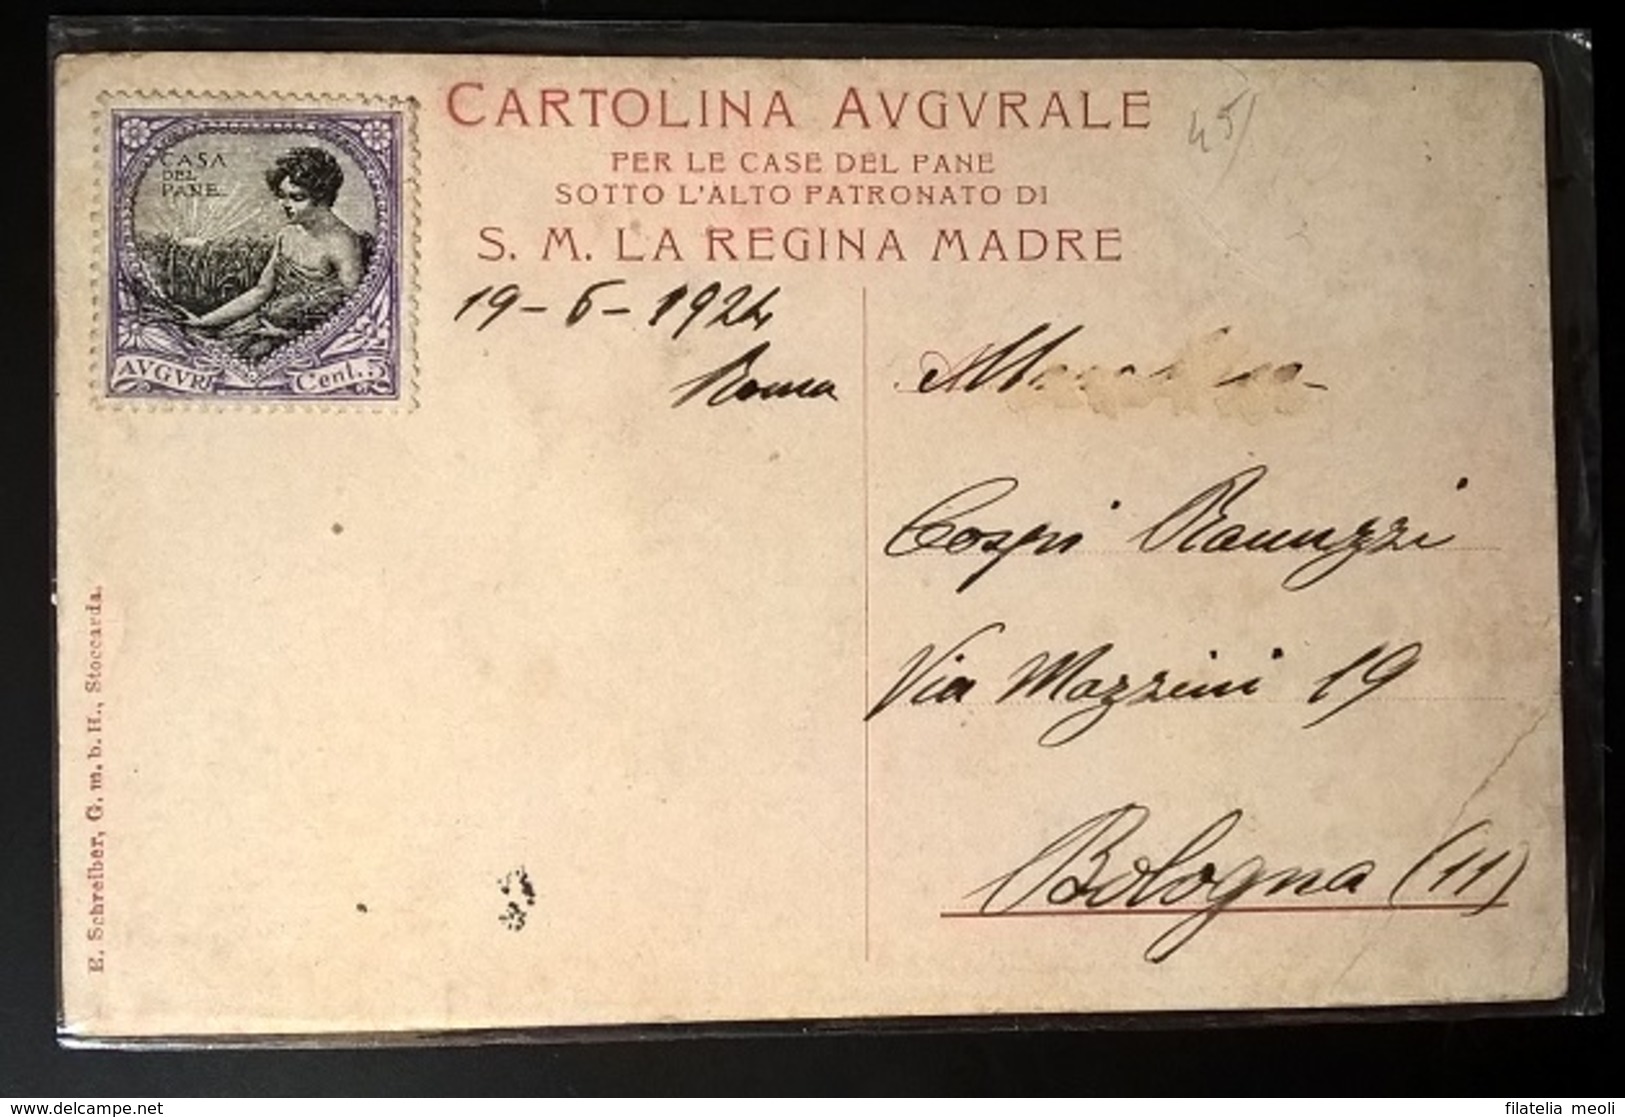 CARTOLINA AVGVRALE
PER LE CASE DEL PANE
SOTTO L'ALTO PATRONATO DI
S. M. LA REGINA MADRE
45/
CASA
DEL
PANE
AVGVRI
Cent. 5
19-6-1924
Roma
Cospi Ranuzzi
Via Mazzini 19
Bologna (11)
E. Schreiber, G. m. b. H., Stoccarda.
delcampe.net
filatelia meoli